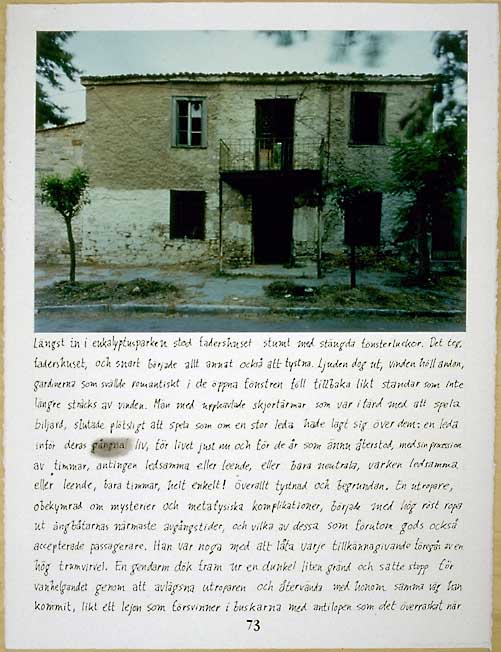 Längst in i eukalyptusparken stod fadershuset stumt med stängda fönsterluckor. Det teg,
fadershuset, och snart började allt annat också att tystna. Ljuden dog ut, vinden höll andan,
gardinerna som svällde romantiskt i de öppna fönstren föll tillbaka likt standar som inte
längre sträcks av vinden. Män med uppkavlade skjortärmar som var i färd med att spela
biljard, slutade plötsligt att spela som om en stor leda hade lagt sig över dem: en leda
inför deras gångna liv, för livet just nu och för de år som ännu återstod, med sin procession
av timmar, antingen ledsamma eller leende, eller bara neutrala, varken ledsamma,
eller leende, bara timmar, helt enkelt! Överallt tystnad och begrundan. En utropare,
obekymrad om mysterier och metafysiska komplikationer, började med hög röst ropa
ut ångbåtarnas närmaste avgångstider, och vilka av dessa som förutom gods också
accepterade passagerare. Han var noga med att låta varje tillkännagivande föregås av en
hög trumvirvel. En gendarm dök fram ur en dunkel liten gränd och satte stopp för
vanhelgandet genom att avlägsna utroparen och återvända med honom samma väg han
kommit, likt ett lejon som försvinner i buskarna med antilopen som det överraskat när
73